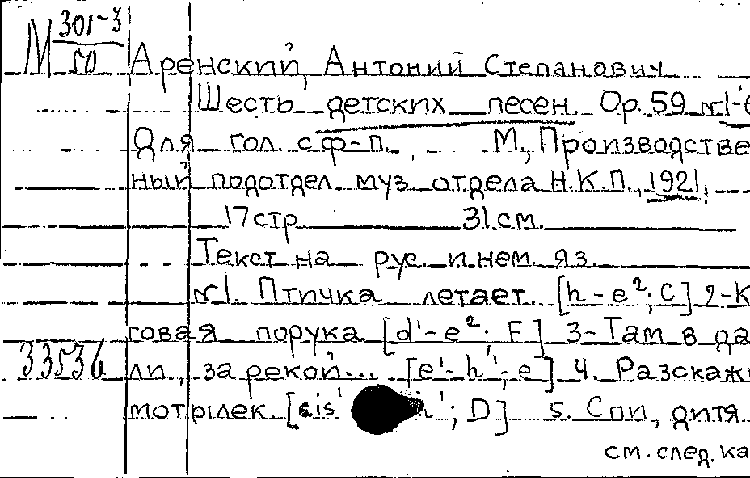 М 301-3
50
Аренский, Антоний Степанович
Шесть детских песен Op. 59 №1-6
Для гол. с ф-п. М., Производстве
ный подотдел муз. отдела Н.К.П., 1921.
17 стр 31 см.
Текст на рус. и нем. яз.
№1. Птичка летает [h - e²; C] 2-К
говая порука [d' - e²; F] 3-Там в да
33536 ли, за рекой... [e' - h'; e] 4. Расскажи
мотылек [cis' h'; D] 5. Спи, дитя
см. след. ка